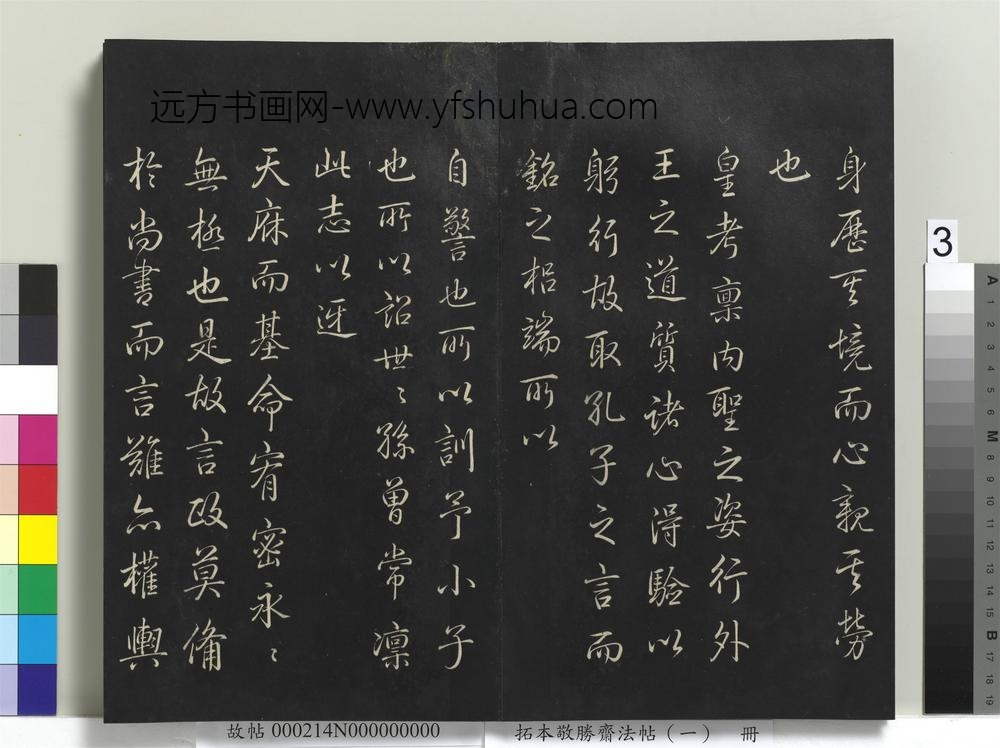 远方书画网-www.yfshuhua.com
身歷其境而心親其勞
也
皇考禀内聖之姿行外
王之道質諸心得驗以
躬行故取孔子之言而
銘之梠端所以
自警也所以訓予小子
也所以詒世〻孫曾常凛
此志以迓
天庥而基命宥密永〻
無極也是故言政莫備
於尚書而言難亦權輿
3
A 1 2 3 4 5 6 M 8 9 10 11 12 13 14 15 B 17 18 19
故帖 000214N000000000
拓本敬勝齋法帖（一） 冊